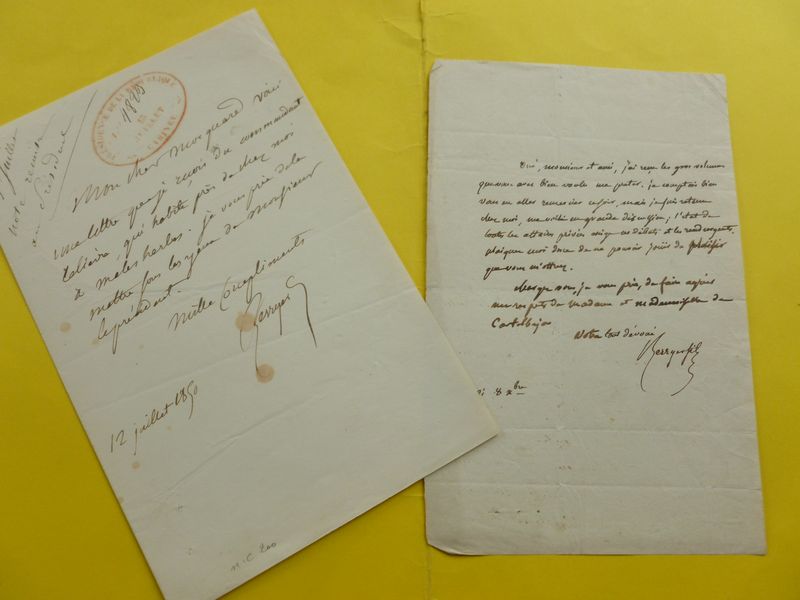 Juillet
note remise
au Président
PRÉSIDENCE DE LA RÉPUBLIQUE
JUILLET
CABINET
Mon cher Mocquard voici
une lettre que je reçois du commandant
qui habite près de chez moi
à malesherbes. je vous prie de la
mettre sous les yeux de Monsieur
le président.
Mille Compliments
Berryer
12 juillet 1850
n.c 200
Oui, monsieur et ami, j'ai reçu les gros volumes
que vous avez bien voulu me prêter. je comptais bien
vous en aller remercier ce soir, mais je suis retenu
chez moi, me voilà en grande discussion; l'état de
toutes les affaires privées exige ces débats et les rend urgents.
plaignez moi donc de ne pouvoir jouir du
que vous m'offrez.
Chargez vous, je vous prie, de faire agréer
mes respects à madame et mademoiselle de
Castelbajac
Votre tout dévoué
Berryer fils
8 xbre